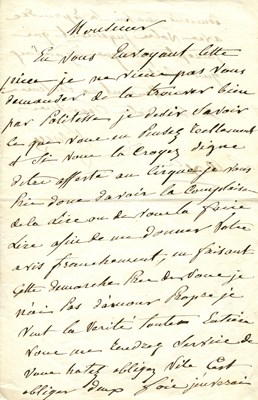 Monsieur
En vous Envoyant Cette
piece je ne viens pas vous
demander de la trouver bien
par Politesse je desir Savoir
ce que vous en Pensez Reellement
et Si vous la Croyez digne
detre offerte au Cirque je vous
Prie donc davoir la Complaisance
de la Lire ou de vous la faire
Lire afin de me donner Votre
avis franchement, en faisant
Cette demarche Pres de Vous je
n'ais Pas d'amour Propre je
veut la Verité toute Entiere
vous me Rendrez Service
vous hatez obligez Vite Cest
obliger deux fois